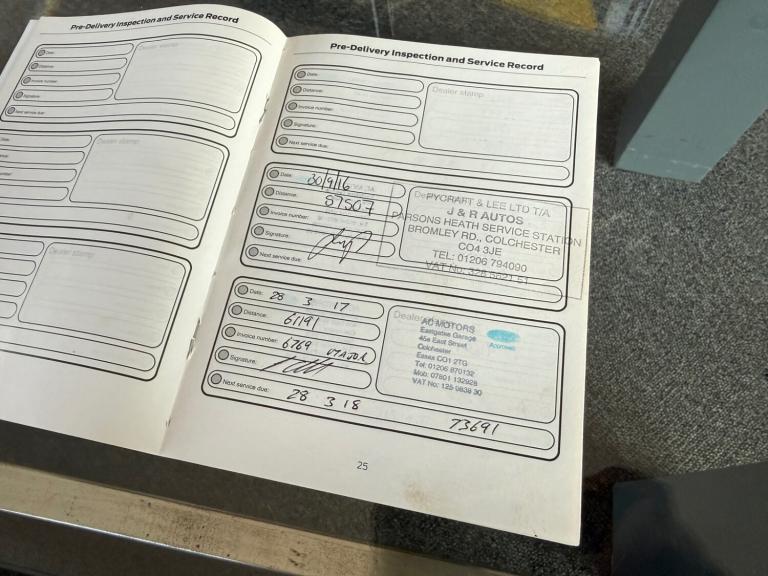 Pre-Delivery Inspection and Service Record
Date:
Distance:
Invoice number:
Signature:
Next service due:
Dealer stamp
Date:
Dealer stamp
Dealer stamp
Pre-Delivery Inspection and Service Record
Date:
Distance:
Invoice number:
Signature:
Next service due:
Dealer stamp
Date: 30/9/16
Distance:
Invoice number:
Signature:
Next service due:
PYCRAFT & LEE LTD T/A
J & R AUTOS
PARSONS HEATH SERVICE STATION
BROMLEY RD., COLCHESTER
CO4 3JE
TEL: 01206 794090
VAT No:
Date: 28 3 17
Distance: 61191
Invoice number: 6769
Signature:
Next service due: 28 3 18
73691
AC MOTORS
Eastgates Garage
45a East Street
Colchester
Essex CO1 2TG
Tel: 01206 870132
Mob: 07801 132928
VAT No: 125 0838 30
Approved
25